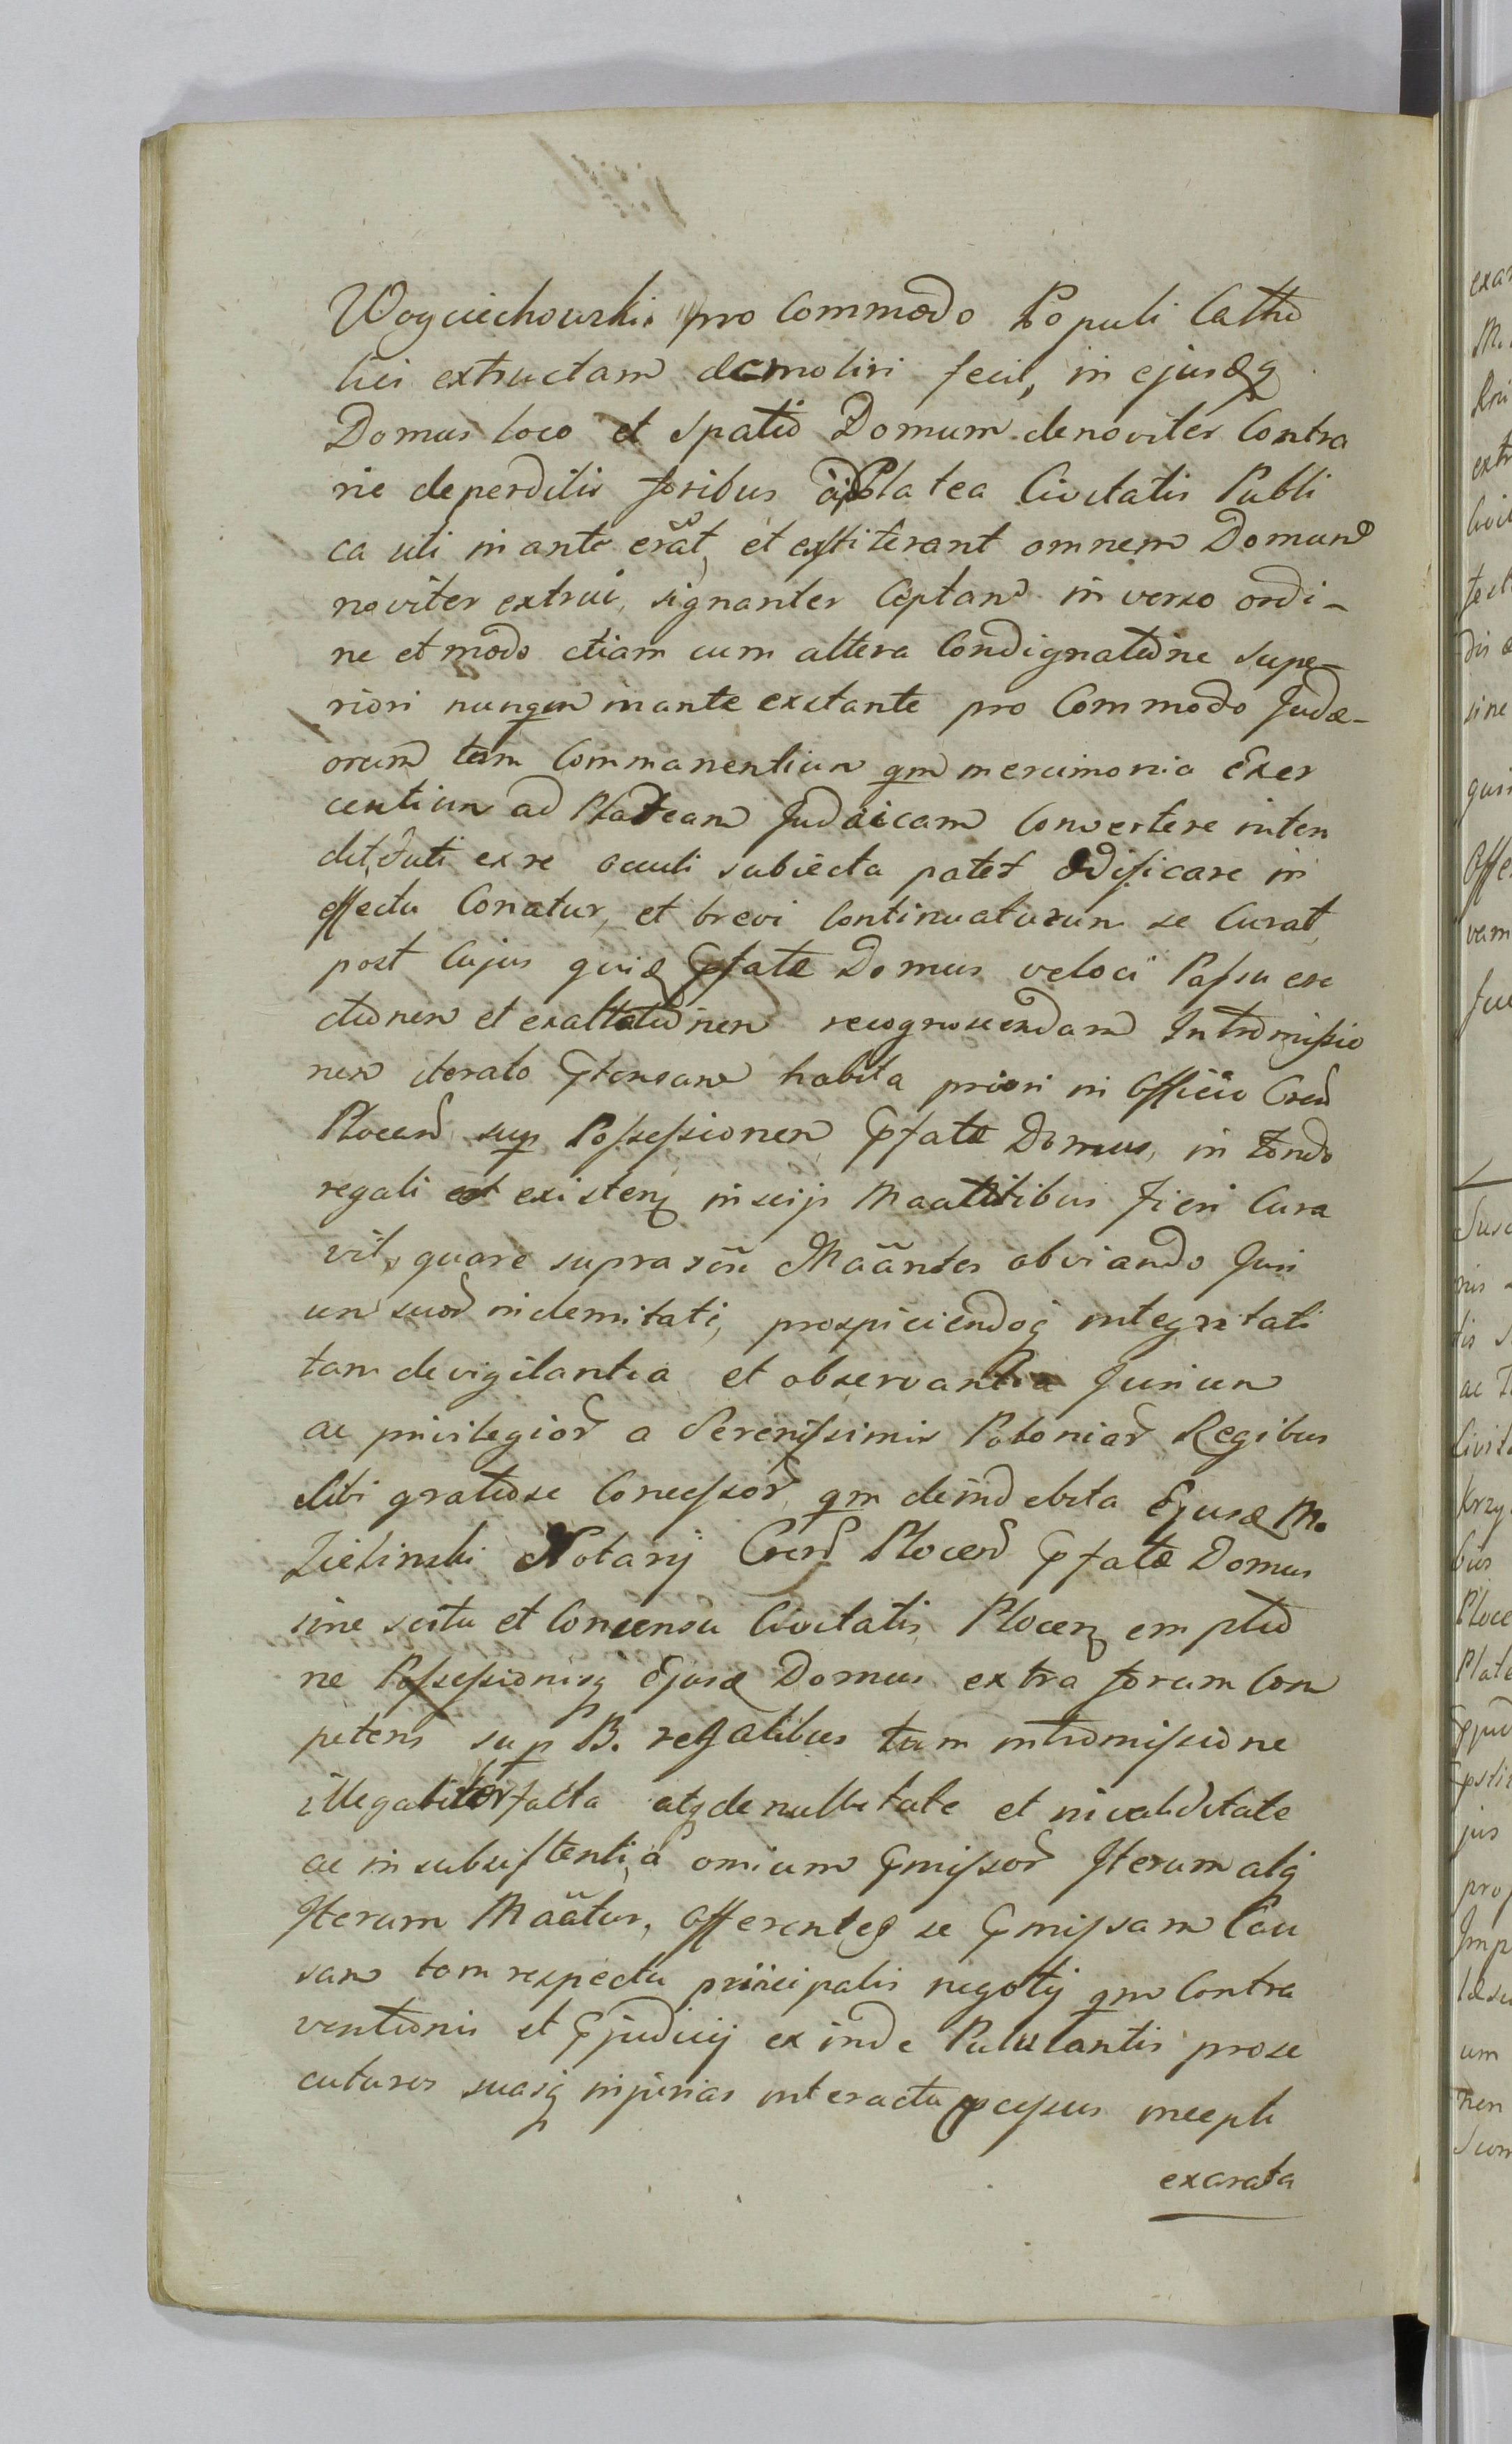 Woyciechowski pro Commodo Populi Catho
lici extructam demoliri fecit, in ejusdq
Domus loco et spatio Domum denoviter Contra
rie deperditis foribus a Platea Civitatis Publi
ca uti in ante erat, et extiterant omnem Domum
noviter extrui, signanter Captan in verso ordi-
ne et modo etiam cum altera Condignatione supe-
riori nunqm inante exstante pro Commodo Judæ-
orum tam Commanentium qm mercimonia Exer
centium ad Plateam Judaicam Convertere inten
dit, uti ex re oculi subiecta patet Ædificare in
effectu Conatur, et brevi Continuaturum se Curat,
post Cujus quiq pfatæ Domus veloci Passu ere
ctionem et exaltationem recognoscendam Intromissio
nem iterato ptensam habita priori in Officio Cren
Plocen sup Possessionem pfatæ Domus, in Fondo
regali existen insciis Maãtibus Fieri Cura
vit, quare supra sõn Maãntes obviando Juri
um suor indemnitati, prospiciendoq integritati
tam de vigilantia et observantia Jurium
ac privilegior a Serenissimis Poloniar Regibus
sibi gratiose Concessor, qm de indebita Ejusd M.
Zielinski Notarij Cren Plocen pfatæ Domus
sine scitu et Consensu Civitatis Plocen emptio
ne Possessionisq Ejusd Domus extra forum Com
petens sup B. regalibus tam intromissione
illegaliter facta atq de nullitate et invaliditate
ac in subsistentia omium pmissor Iterum atq
Iterum Maãtur, offerentes se pmissam Cau
sam tam respectu principalis negotij qm Contra
ventionis et pjudicij ex inde Pululantis prose
cuturos suasq injurias inter actu pcessus incepti
exarata